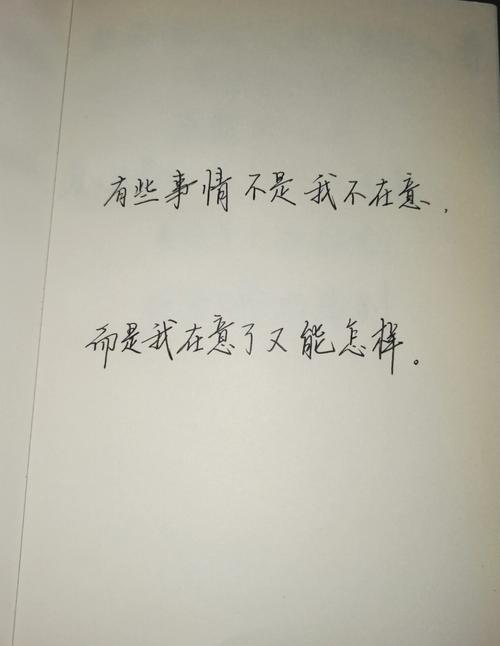 有些事情不是我不在意，
而是我在意了又能怎样。